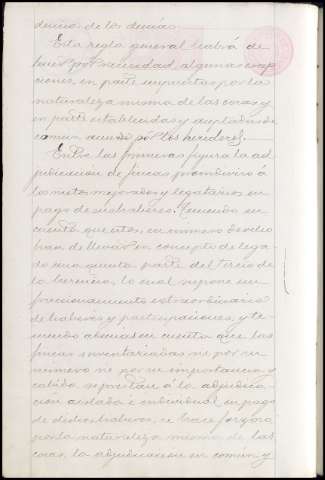 demás de los demás.
Esta regla general habrá de
tener por necesidad alguna excep
ciones, en parte impuestas por la
naturaleza misma de las cosas y
en parte establecidas y aceptadas de
comun acuerdo por los herederos.
Entre las primeras figura la ad
judicacion de fincas proindiviso á
los nietos mejorados y legatarios en
pago de sus haberes. Teniendo en
cuenta que estos, en número de ocho
han de llevar en concepto de lega
do una quinta parte del tercio de
la herencia, lo cual supone un
fraccionamiento extraordinario
de haberes y participaciones, y te
niendo además en cuenta que las
fincas inventariadas ni por su
número ni por su importancia y
cabida se prestan á la adjudica
cion aislada é individual en pago
de dichos haberes, se hace forzoso
por la naturaleza misma de las
cosas, la adjudicacion en comun y